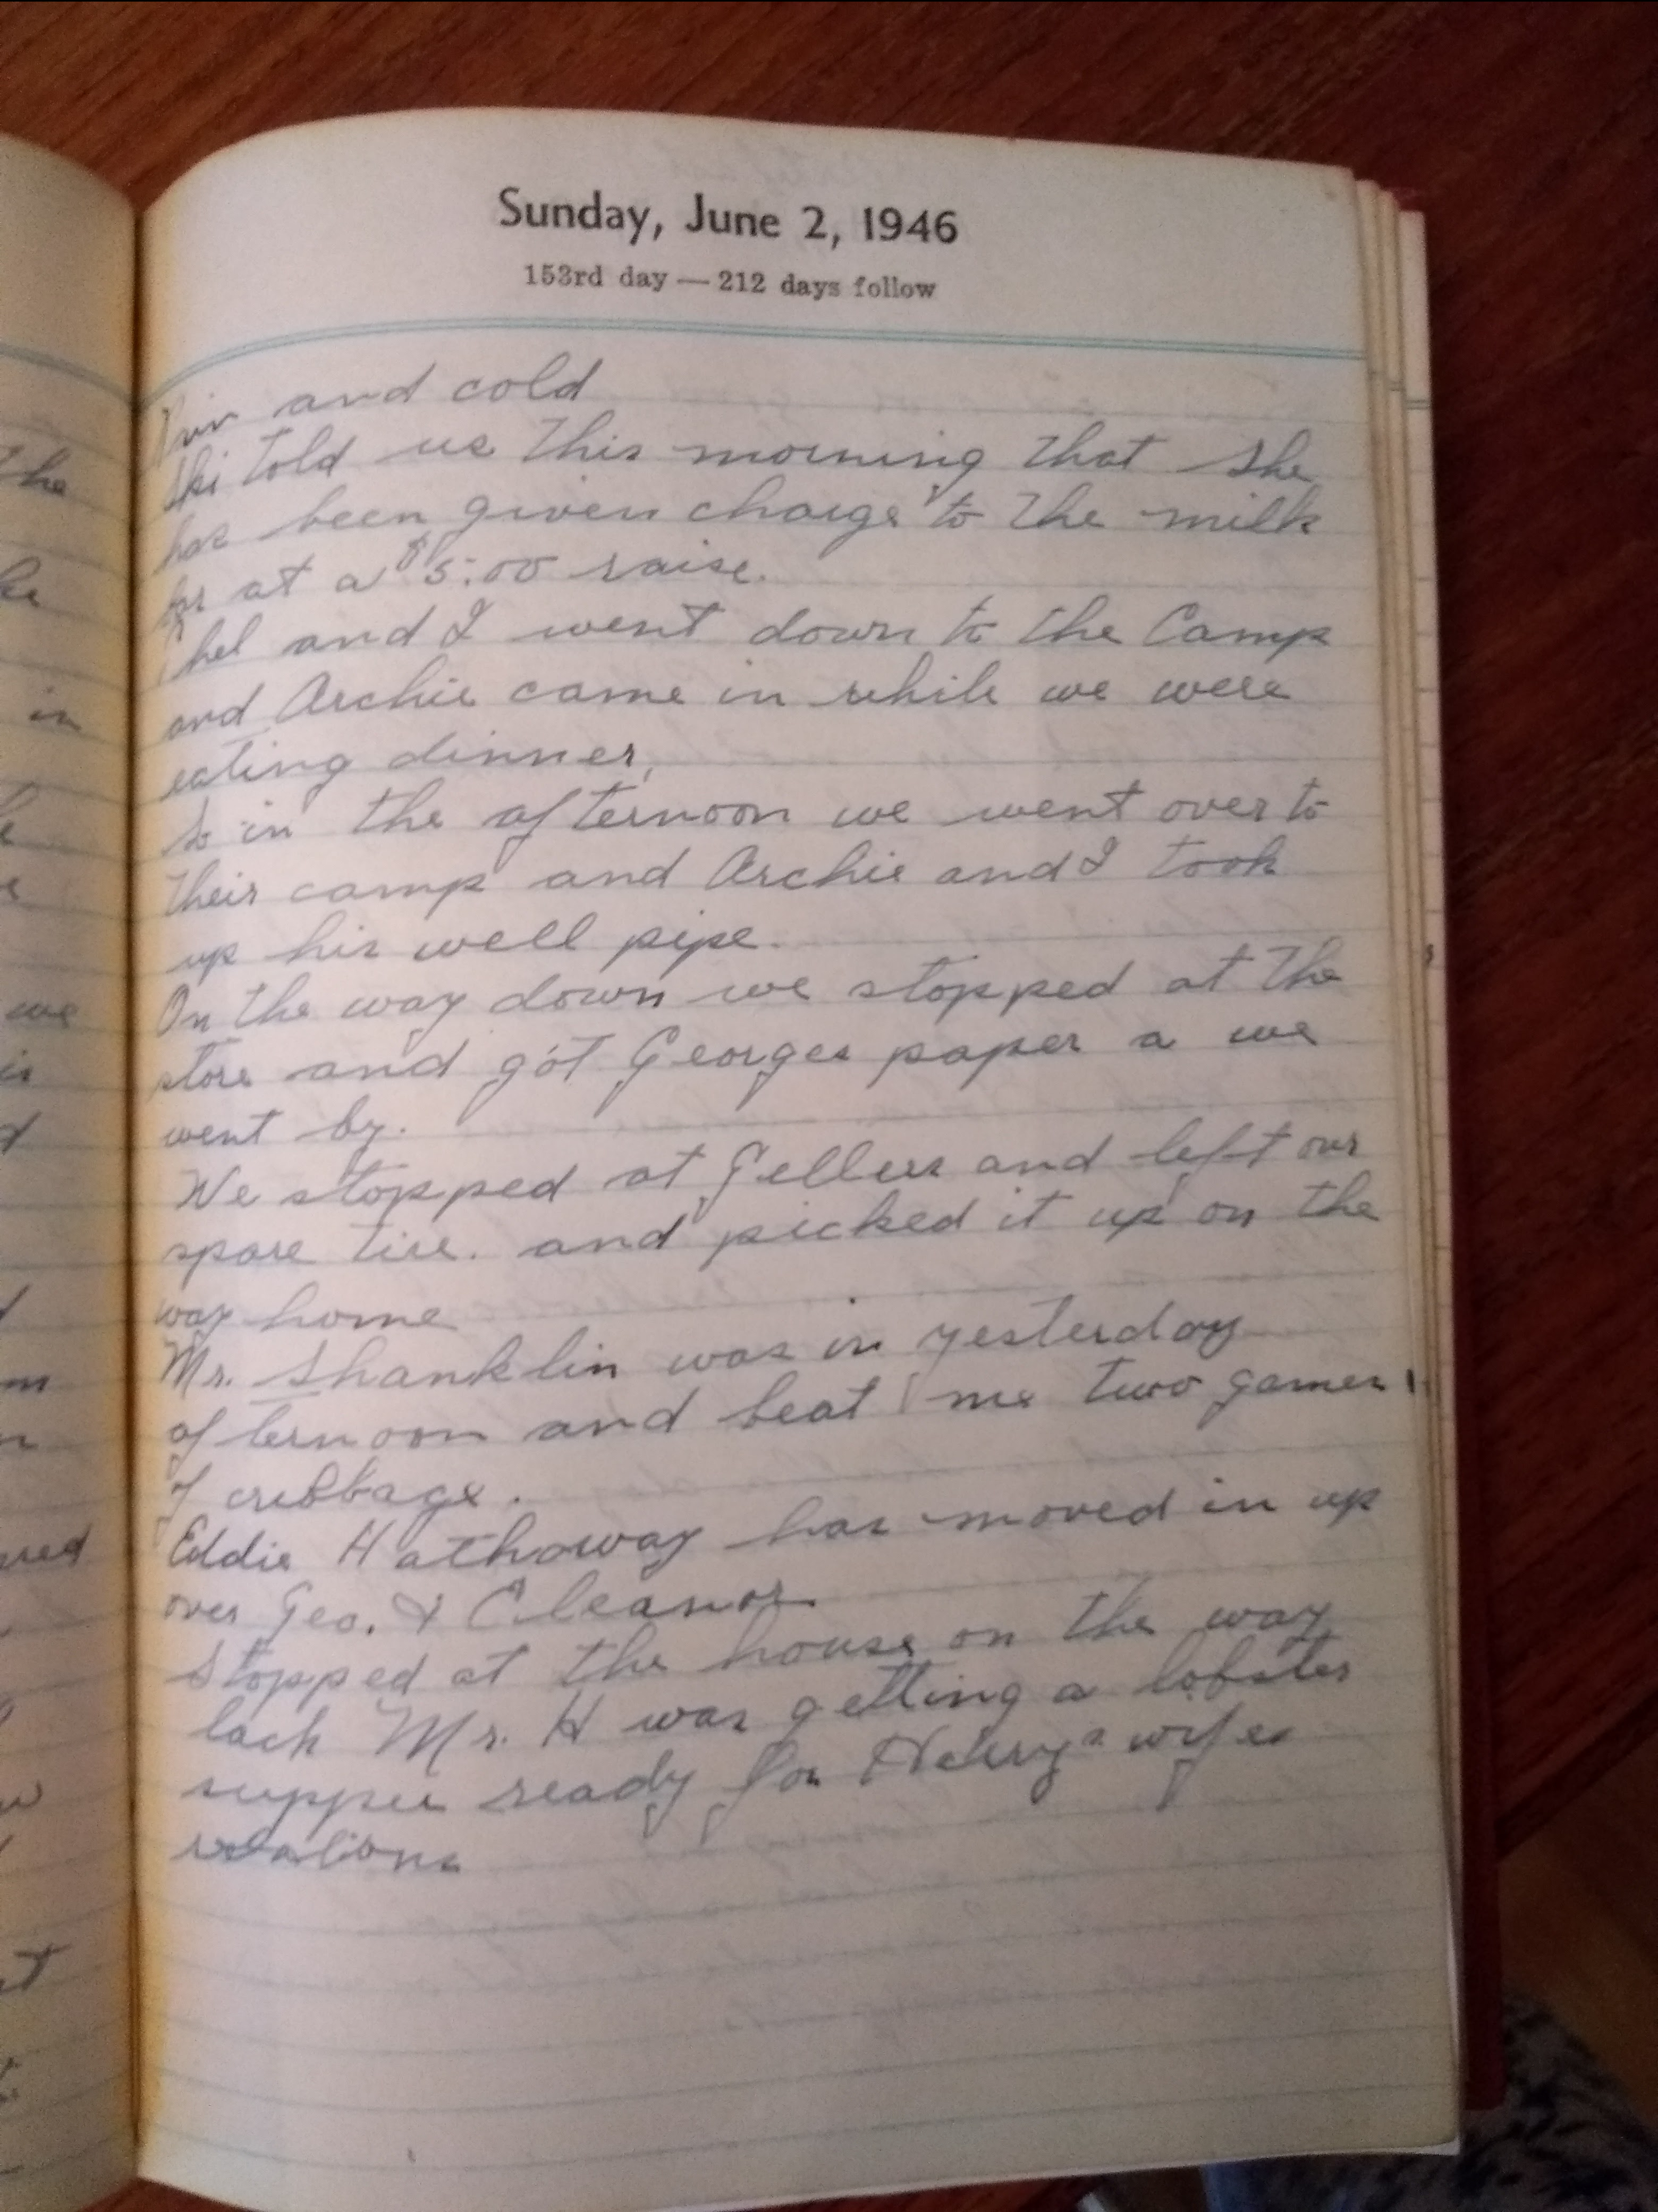 Sunday, June 2, 1946
153rd day — 212 days follow
and cold
Ski told us this morning that she
has been given charge to the milk
at a $5.00 raise.
and I went down to the Camp
and Archie came in while we were
eating dinner,
So in the afternoon we went over to
their camp and Archie and I took
up his well pipe.
On the way down we stopped at the
store and got Georges paper a we
went by.
We stopped at and left our
spare tire. and picked it up on the
way home
Mr. Shanklin was in yesterday
afternoon and beat me two games
of cribbage.
Eddie Hathaway has moved in up
over Geo. & Eleanor.
Stopped at the house on the way
back Mr. H was getting a lobster
supper ready for wifes
relations
The
in
we
is